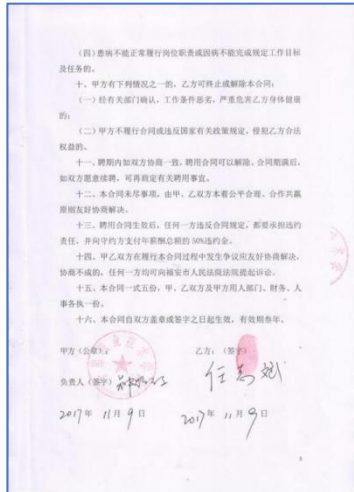 （四）患病不能正常履行岗位职责或因病不能完成规定工作目标
及任务的。
十、甲方有下列情况之一的，乙方可终止或解除本合同：
（一）经有关部门确认，工作条件恶劣，严重危害乙方身体健康
的；
（二）甲方不履行合同或违反国家有关政策规定，侵犯乙方合法
权益的。
十一、聘期内如双方协商一致，聘用合同可以解除。合同期满后，
如双方愿意续聘，可再商定有关聘用事宜。
十二、本合同未尽事项，由甲、乙双方本着公平合理、合作共赢
原则友好协商解决。
十三、聘用合同生效后，任何一方违反合同规定，都要承担违约
责任，并向守约方支付年薪酬总额的 50%违约金。
十四、甲乙双方在履行本合同过程中发生争议应友好协商解决，
协商不成的，任何一方均可向福安市人民法院法院提起诉讼。
十五、本合同一式五份，甲、乙双方及甲方用人部门、财务、人
事各执一份。
十六、本合同自双方盖章或签字之日起生效，有效期叁年。
甲方（公章）： 乙方：（签字）
负责人（签字） 任
2017年 11月 9日 2017年 11月 9日